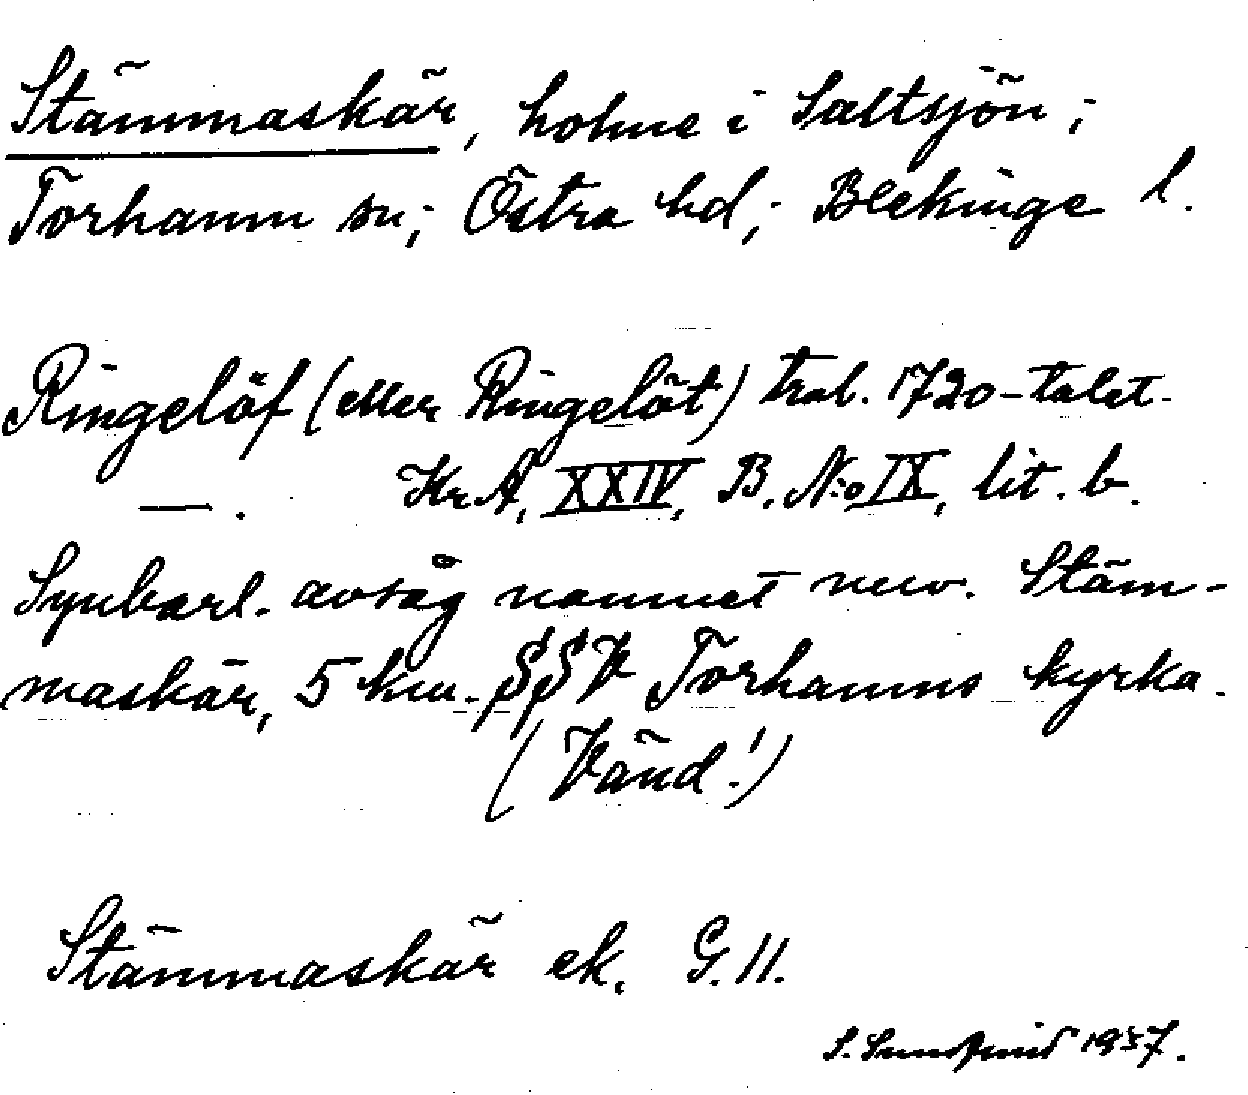 Stämmaskär, holme i Saltsjön;
Torhamn sn; Östra hd; Blekinge l.
Ringelöf (eller Ringelöt) trol. 1720-talet.
—. KrA, XXIV, B. N:o IX, lit. b.
Synbarl. avsåg namnet nuv. Stäm-
maskär, 5 km. SSV Torhamns kyrka.
(Vänd!)
Stämmaskär ek. G. 11.
S. 1937.